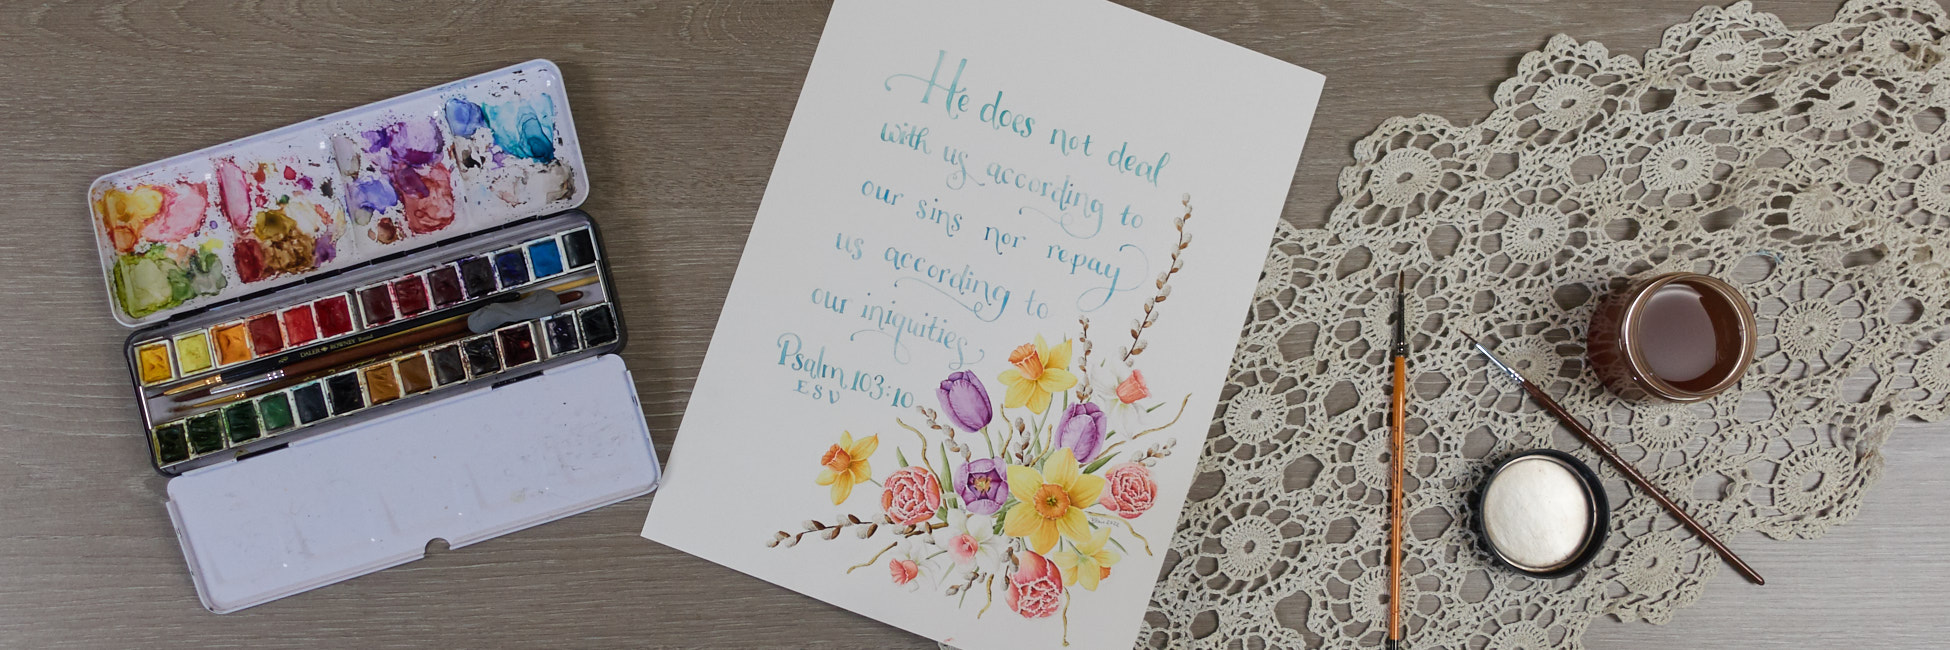 He does not deal
with us according to
our sins nor repay
us according to
our iniquities
Psalm 103:10
ESV
DALER ROWNEY